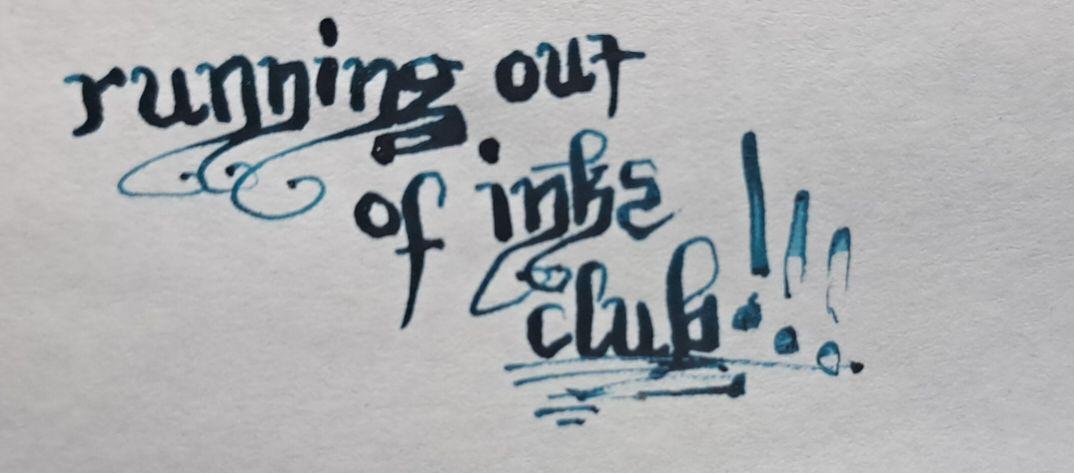 running out
of inks
club!!!